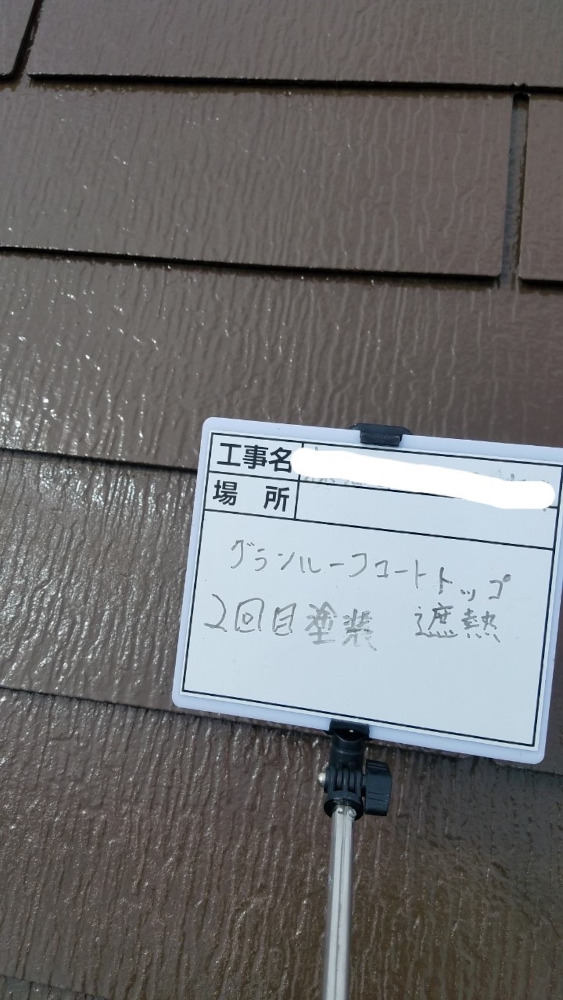 工事名
場 所
グランルーフコートトップ
2回目塗装 遮熱